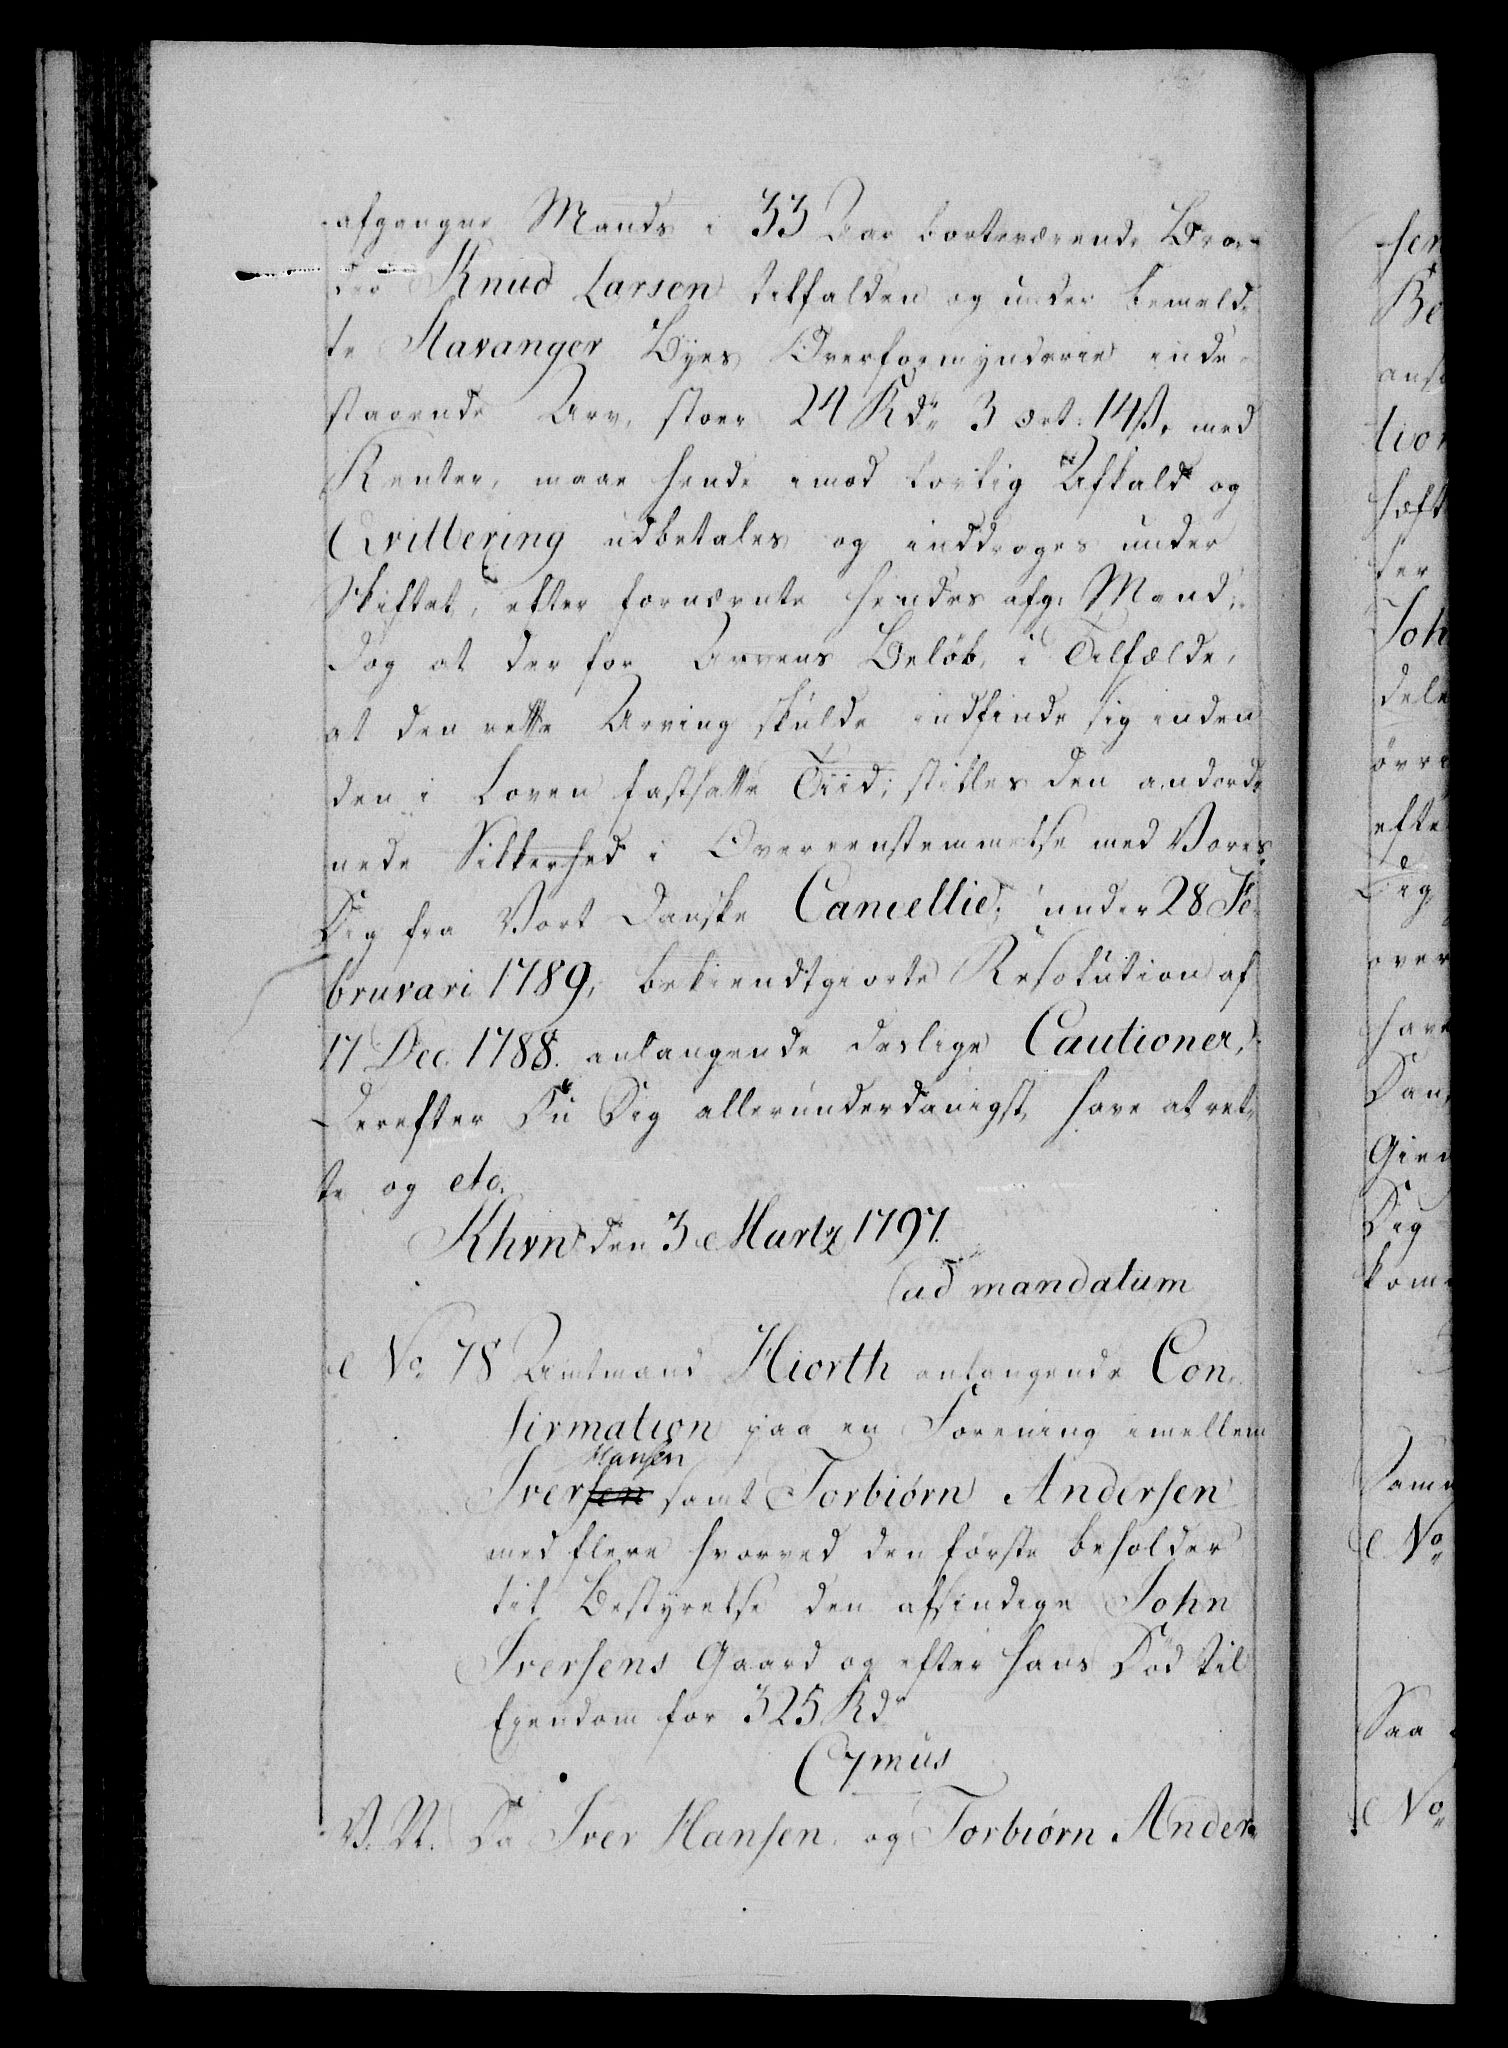 afgangne Mands i 33 Aar bortværende Bro-
der Knud Larsen tilfalden og under bemeld-
te Stavanger Byes Overformynderie inde-
staaende Arv, stoer 24 Rdr 3 ort 14 ß, med
Renter, maae hende imod lovlig Afkald og
Qvittering udbetales og inddrages under
Skiftet, efter fornævnte hendes afg: Mand;
Dog at der for Arvens Beløb, i Tilfælde,
at den rette Arving skulde indfinde sig inden
den i Loven fastsatte Tiid, stilles den anord-
nede Sikkerhed i Overeenstemmelse med Vores
Dig fra Vort Danske Cancellie, under 28 Fe-
bruvari 1789, bekiendtgiorte Resolution af
17 Dec. 1788. anlangende deslige Cautioner,
Derefter Du Dig allerunderdanigst have at ret-
te og etc.
Khvn den 3 Martz 1797.
ad mandatum
No 78 Amtmand Hiorth anlangende Con-
firmation paa en Forening imellem
Hansen
Iversen samt Torbiørn Andersen
med flere hvorved den første beholder
til Bestyrelse den afsindige John
Iversens Gaard og efter hans Død til
Eyendom for 325 Rdr
C7mus
V. A. Da Iver Hansen og Torbiørn Ander-